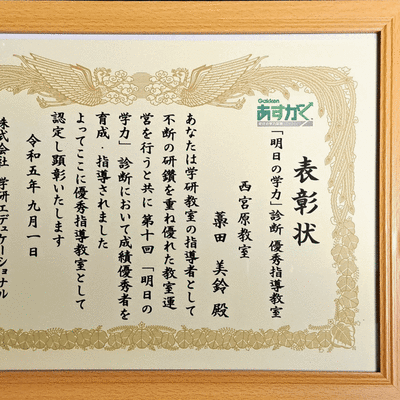 Gakken
あすがく
表彰状
「明日の学力」診断 優秀指導教室
西宮原教室
藁田 美鈴 殿
あなたは学研教室の指導者として
不断の研鑽を重ね優れた教室運
営を行うと共に 第十回 「明日の
学力」診断において成績優秀者を
育成・指導されました
よってここに優秀指導教室として
認定し顕彰いたします
令和五年 九月一日
株式会社 学研エデュケーショナル